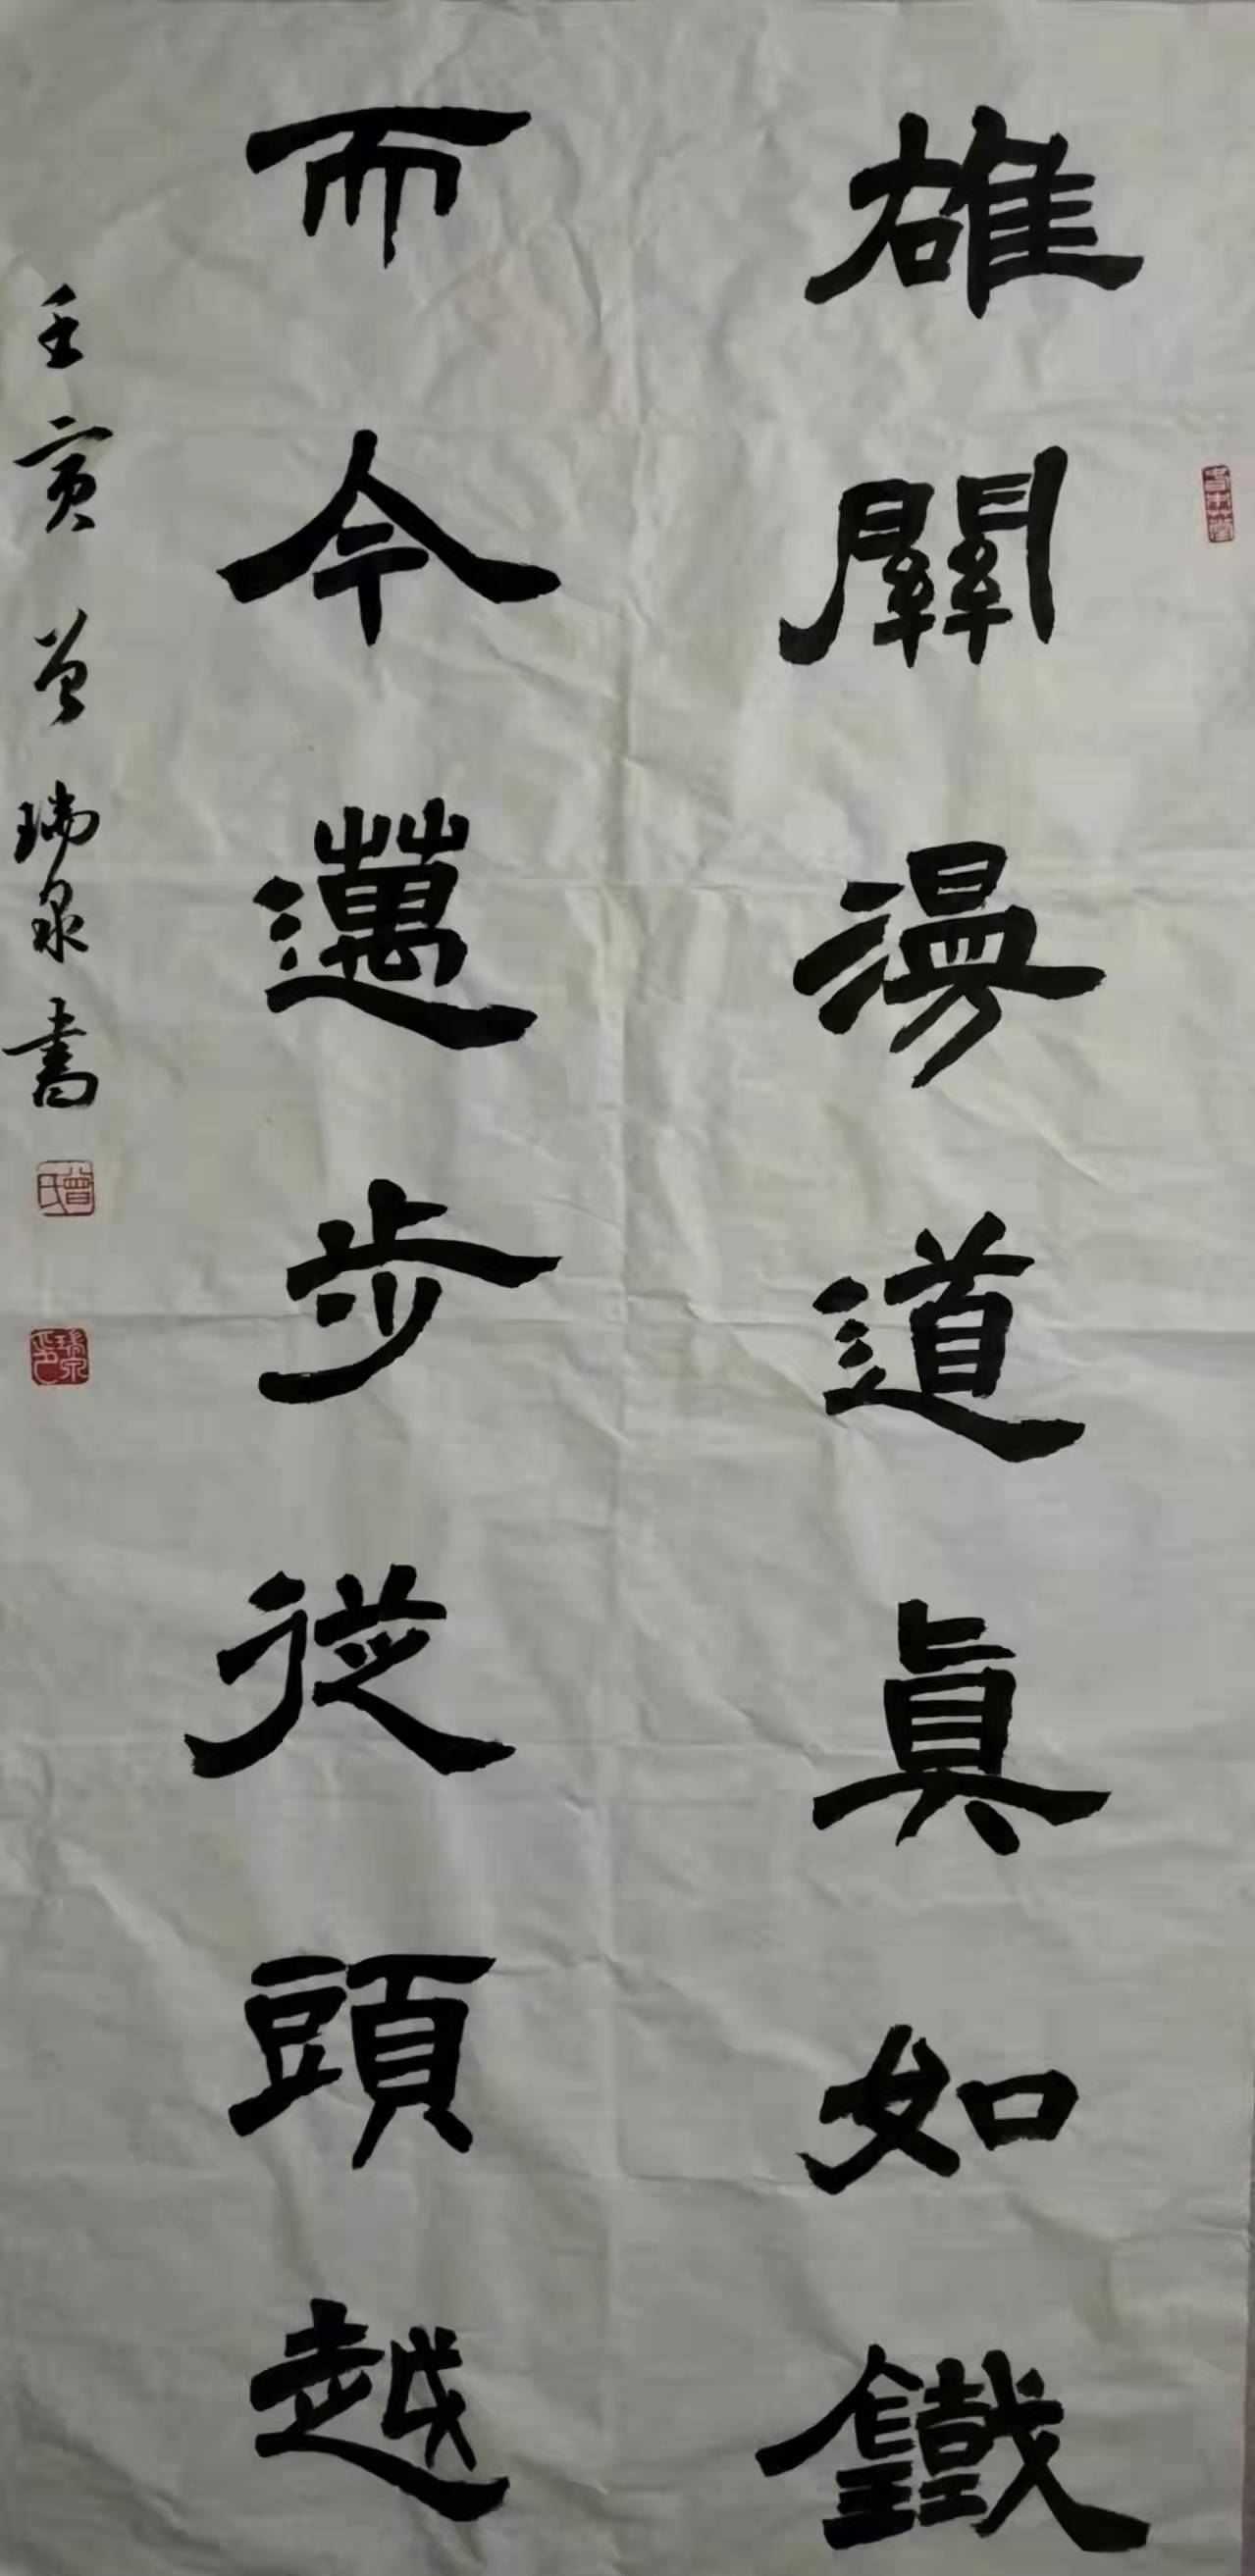 雄關漫道真如鐵
而今邁步從頭越
壬寅曾瑞泉書
曾氏